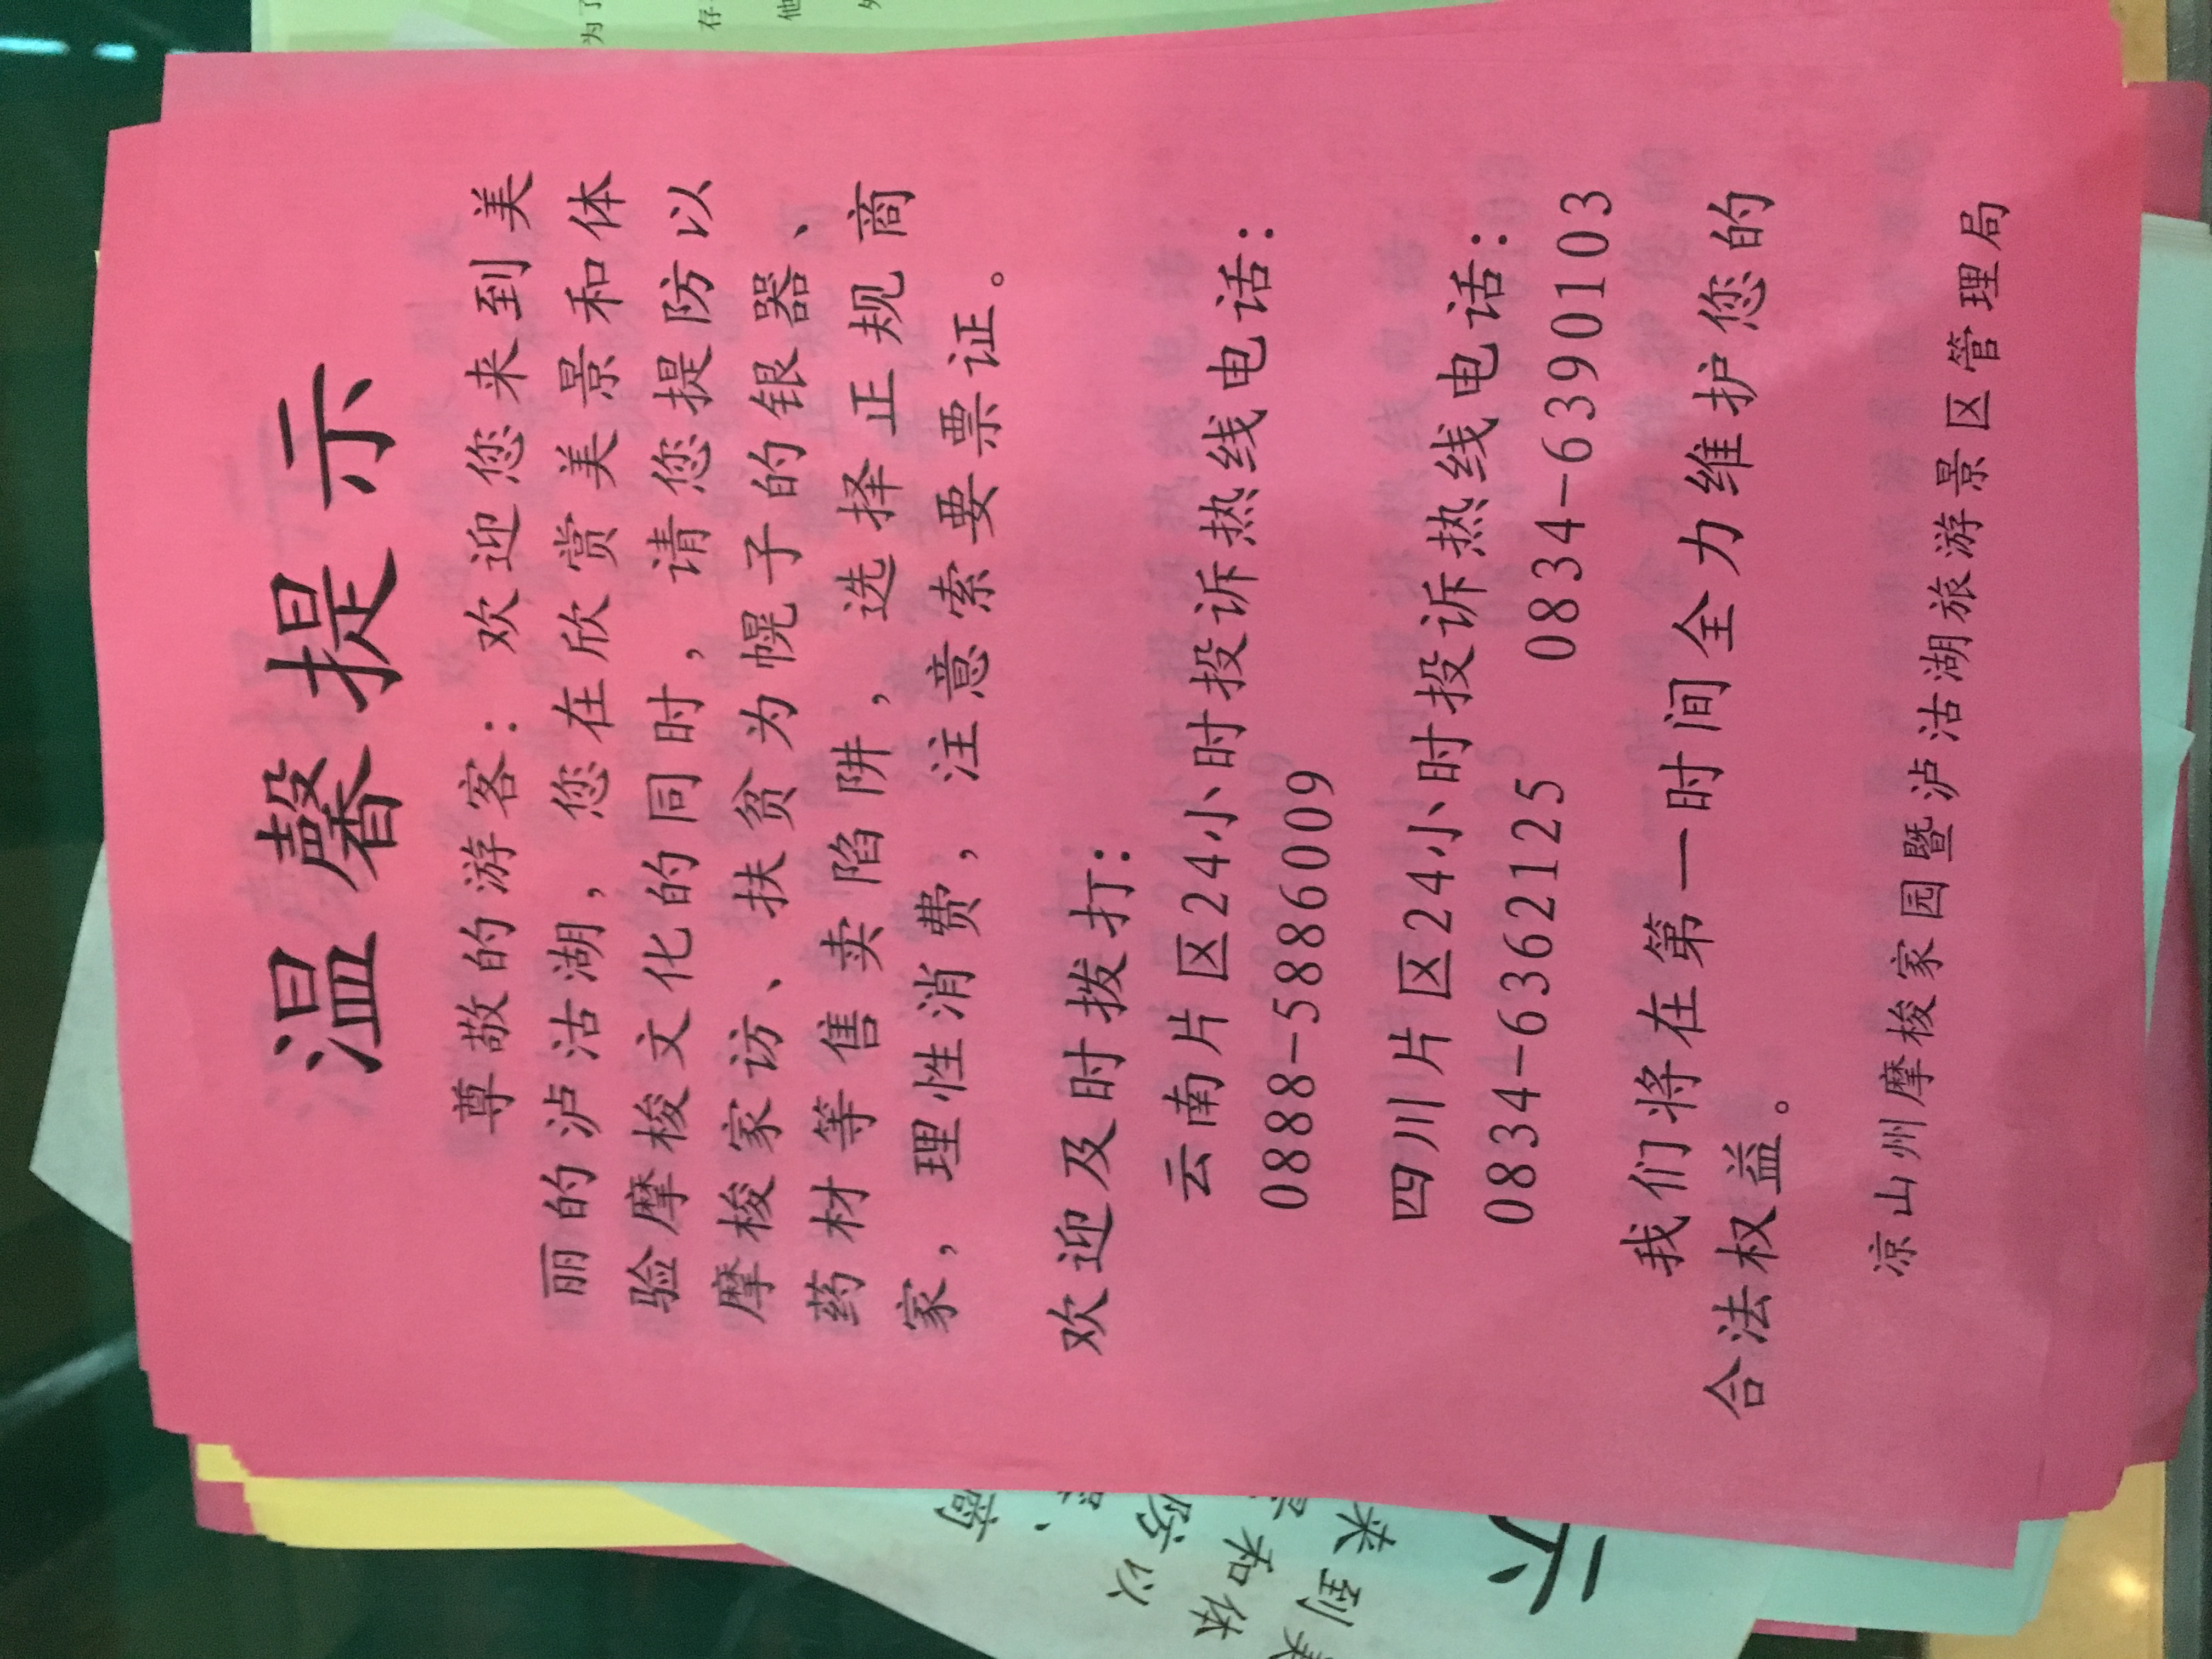 温馨提示
尊敬的游客：欢迎您来到美
丽的泸沽湖，您在欣赏美景和体
验摩梭文化的同时，请您提防以
摩梭家访、扶贫为幌子的银器、
药材等售卖陷阱，选择正规商
家，理性消费，注意索要票证。
欢迎及时拨打：
云南片区24小时投诉热线电话：
0888-5886009
四川片区24小时投诉热线电话：
0834-6362125 0834-6390103
我们将在第一时间全力维护您的
合法权益。
凉山州摩梭家园暨泸沽湖旅游景区管理局
为了
存
他
到美
和体
防以
来
示